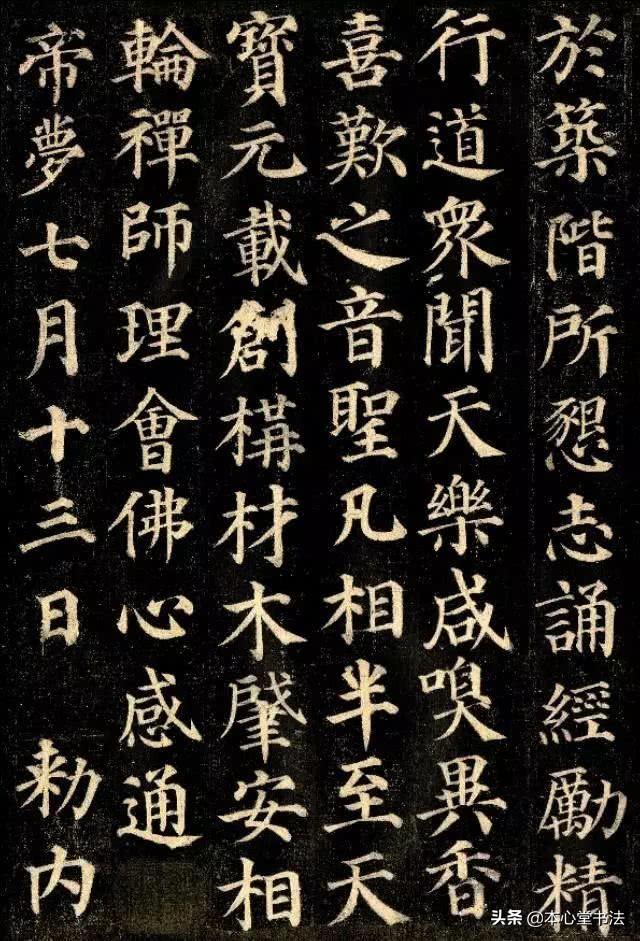 於築階所懇志誦經勵精
行道衆聞天樂咸嗅異香
喜歎之音聖凡相半至天
寶元載創構材木肈安相
輪禪師理會佛心感通
帝夢七月十三日 勑内
头条 @本心堂书法